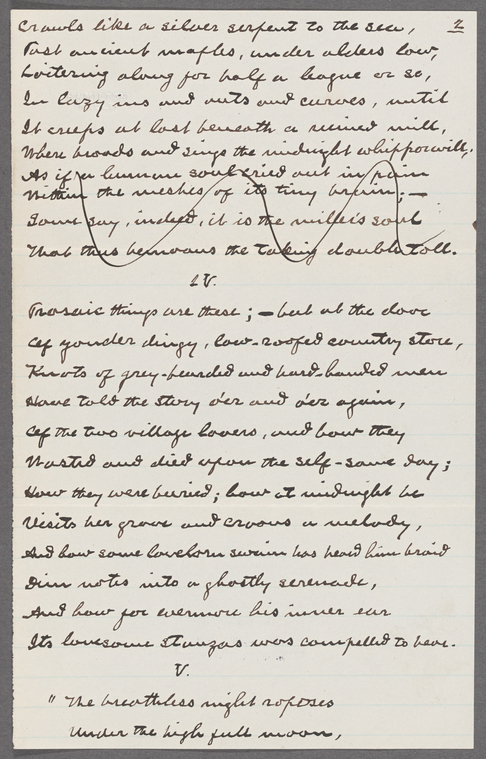 2
Crawls like a silver serpent to the sea,
Past ancient maples, under alders low,
Loitering along for half a league or so,
In lazy ins and outs and curves, until
It creeps at last beneath a ruined mill,
Where broods and sings the midnight whipporwill,
As if a human soul cried out in pain
Within the meshes of its tiny brain; —
Some say, indeed, it is the miller's soul
That thus bemoans the taking double toll.
IV.
Prosaic things are these; — but at the door
Of yonder dingy, low-roofed country store,
Knots of grey-bearded and hard-handed men
Have told the story o'er and o'er again,
Of the two village lovers, and how they
Wasted and died upon the self-same day;
How they were buried; how at midnight he
Visits her grave and croons a melody,
And how some lovelorn swain has heard him braid
Dim notes into a ghostly serenade,
And how for evermore his inner ear
Its lonesome stanzas was compelled to hear.
V.
" The breathless night reposes
Under the high full moon,